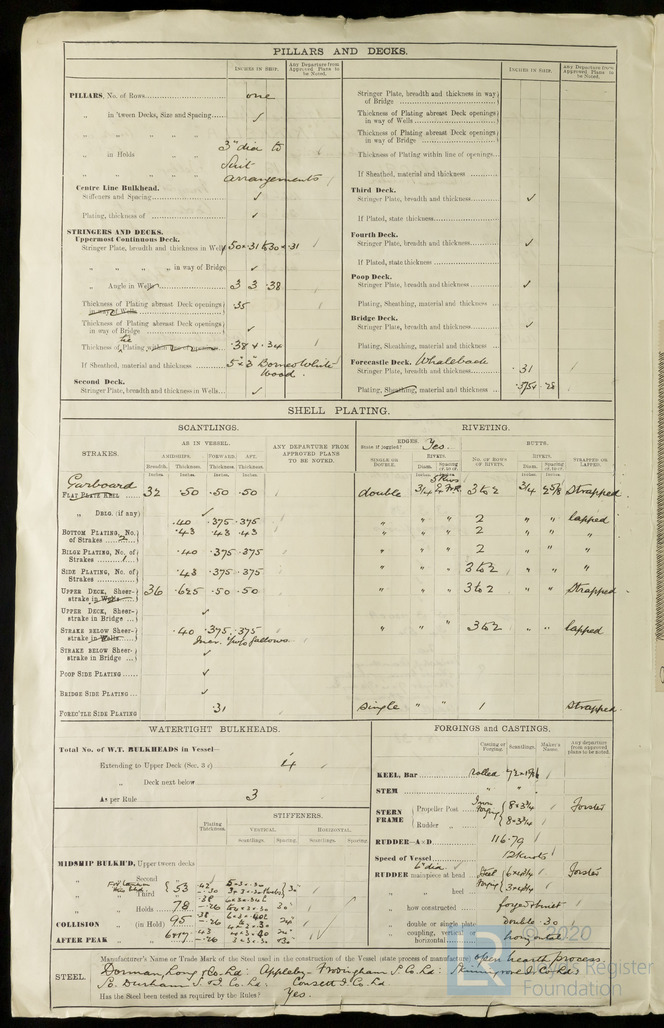 PILLARS AND DECKS.
INCHES IN SHIP.
Any Departure from Approved Plans to be Noted.
PILLARS, No. of Rows one
„ in 'tween Decks, Size and Spacing ✓
„ „ „ „
„ in Holds „ 3" dia to
suit
„ „ „ arrangements
Centre Line Bulkhead.
Stiffeners and Spacing ✓
Plating, thickness of ✓
STRINGERS AND DECKS.
Uppermost Continuous Deck.
Stringer Plate, breadth and thickness in Wells 50 × .31 to 30 × .31
„ „ „ „ in way of Bridge ✓
„ Angle in Wells 3 3 .38
Thickness of Plating abreast Deck openings in way of Wells .35
Thickness of Plating abreast Deck openings in way of Bridge ✓
Thickness of Tie Plating within line of openings .38 & .34
If Sheathed, material and thickness 5" × 3" Borneo White
wood.
Second Deck.
Stringer Plate, breadth and thickness in Wells ✓
INCHES IN SHIP.
Any Departure from Approved Plans to be Noted.
Stringer Plate, breadth and thickness in way of Bridge
Thickness of Plating abreast Deck openings in way of Wells
Thickness of Plating abreast Deck openings in way of Bridge
Thickness of Plating within line of openings
If Sheathed, material and thickness
Third Deck.
Stringer Plate, breadth and thickness ✓
If Plated, state thickness
Fourth Deck.
Stringer Plate, breadth and thickness ✓
If Plated, state thickness
Poop Deck.
Stringer Plate, breadth and thickness ✓
Plating, Sheathing, material and thickness
Bridge Deck.
Stringer Plate, breadth and thickness ✓
Plating, Sheathing, material and thickness
Forecastle Deck. Whaleback
Stringer Plate, breadth and thickness .31
Plating, Sheathing, material and thickness .28
SHELL PLATING.
SCANTLINGS.
RIVETING.
STRAKES.
AS IN VESSEL.
AMIDSHIPS. FORWARD. AFT.
Breadth. Thickness. Thickness. Thickness.
ANY DEPARTURE FROM APPROVED PLANS TO BE NOTED.
EDGES. Yes.
State if joggled?
SINGLE OR DOUBLE.
RIVETS.
Diam. Spacing cr. to cr.
BUTTS.
NO. OF ROWS OF RIVETS.
RIVETS.
Diam. Spacing cr. to cr.
STRAPPED OR LAPPED.
Garboard
FLAT PLATE KEEL 32 .50 .50 .50 double 3/4 3 to 2 3/4 2 5/8 Strapped
„ DBLG. (if any) ✓
BOTTOM PLATING, No. of Strakes 2 .40 .375 .375 „ „ „ 2 „ „ lapped
.43 .43 .43 „ „ „ 2 „ „ „
BILGE PLATING, No. of Strakes 1 .40 .375 .375 „ „ „ 2 „ „ „
SIDE PLATING, No. of Strakes .43 .375 .375 „ „ 3 to 2 „ „ „
UPPER DECK, Sheerstrake in Wells 36 .625 .50 .50 „ „ „ 3 to 2 „ „ Strapped
UPPER DECK, Sheerstrake in Bridge ✓
STRAKE BELOW Sheerstrake in Wells .40 .375 .375 „ „ „ 3 to 2 „ „ lapped
Incr. Two gallows
STRAKE BELOW Sheerstrake in Bridge ✓
POOP SIDE PLATING ✓
BRIDGE SIDE PLATING ✓
FOREC'TLE SIDE PLATING .31 single „ „ 1 Strapped
WATERTIGHT BULKHEADS.
Total No. of W.T. BULKHEADS in Vessel—
Extending to Upper Deck (Sec. 3 c) 4
„ Deck next below
As per Rule 3
STIFFENERS.
Plating Thickness.
VERTICAL. HORIZONTAL.
Scantlings. Spacing. Scantlings. Spacing.
MIDSHIP BULKH'D, Upper tween decks
„ Second „
„ Third „ 53
„ Holds 78
COLLISION „ (in Hold) 95
AFTER PEAK „ „
FORGINGS AND CASTINGS.
Casting or Forging. Scantlings. Maker's Name. Any departure from approved plans to be noted.
KEEL, Bar rolled
STEM „ „
STERN FRAME { Propeller Post Iron Forging 8 × 3 3/4 Forster
Rudder „ 8 × 3 3/4
RUDDER—A×D 116.79
Speed of Vessel 12 knots
RUDDER mainpiece at head Steel Forster
„ „ heel
„ how constructed forged & built
„ double or single plate double .30
„ coupling, vertical or horizontal horizontal
STEEL.
Manufacturer's Name or Trade Mark of the Steel used in the construction of the Vessel (state process of manufacture) open hearth process.
Dorman, Long & Co. Ld: Appleby-Frodingham S. Co. Ld: Skinningrove I. Co. Ld:
So. Durham S. & I. Co. Ld: Consett I. Co. Ld.
Has the Steel been tested as required by the Rules? Yes.
LR © 2020
Lloyd's Register
Foundation